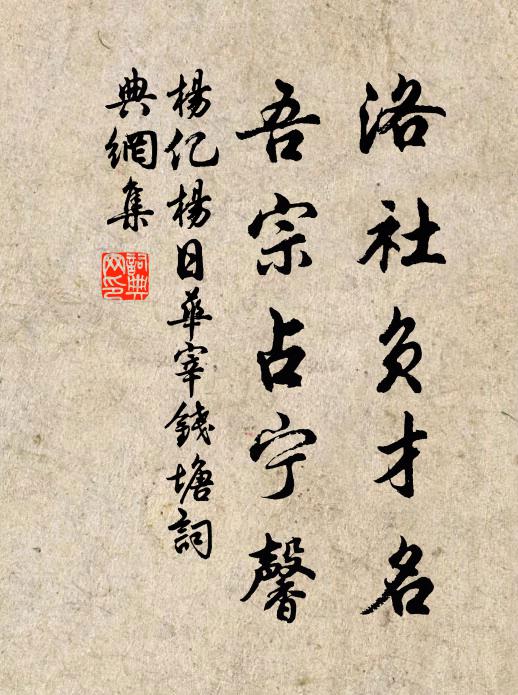 洛社负才名
吾宗占宁馨
楊亿楊日華宰錢塘詞
典網集
詞典
网印